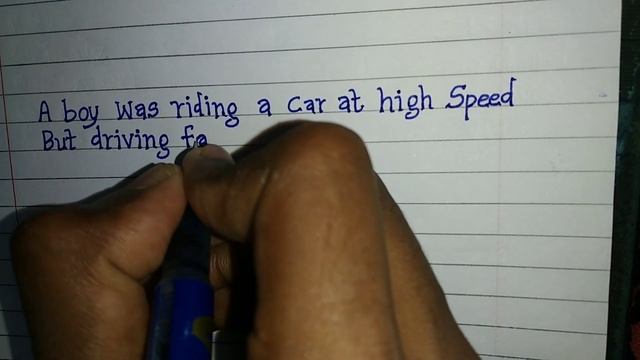 A boy was riding a car at high Speed
But driving fa